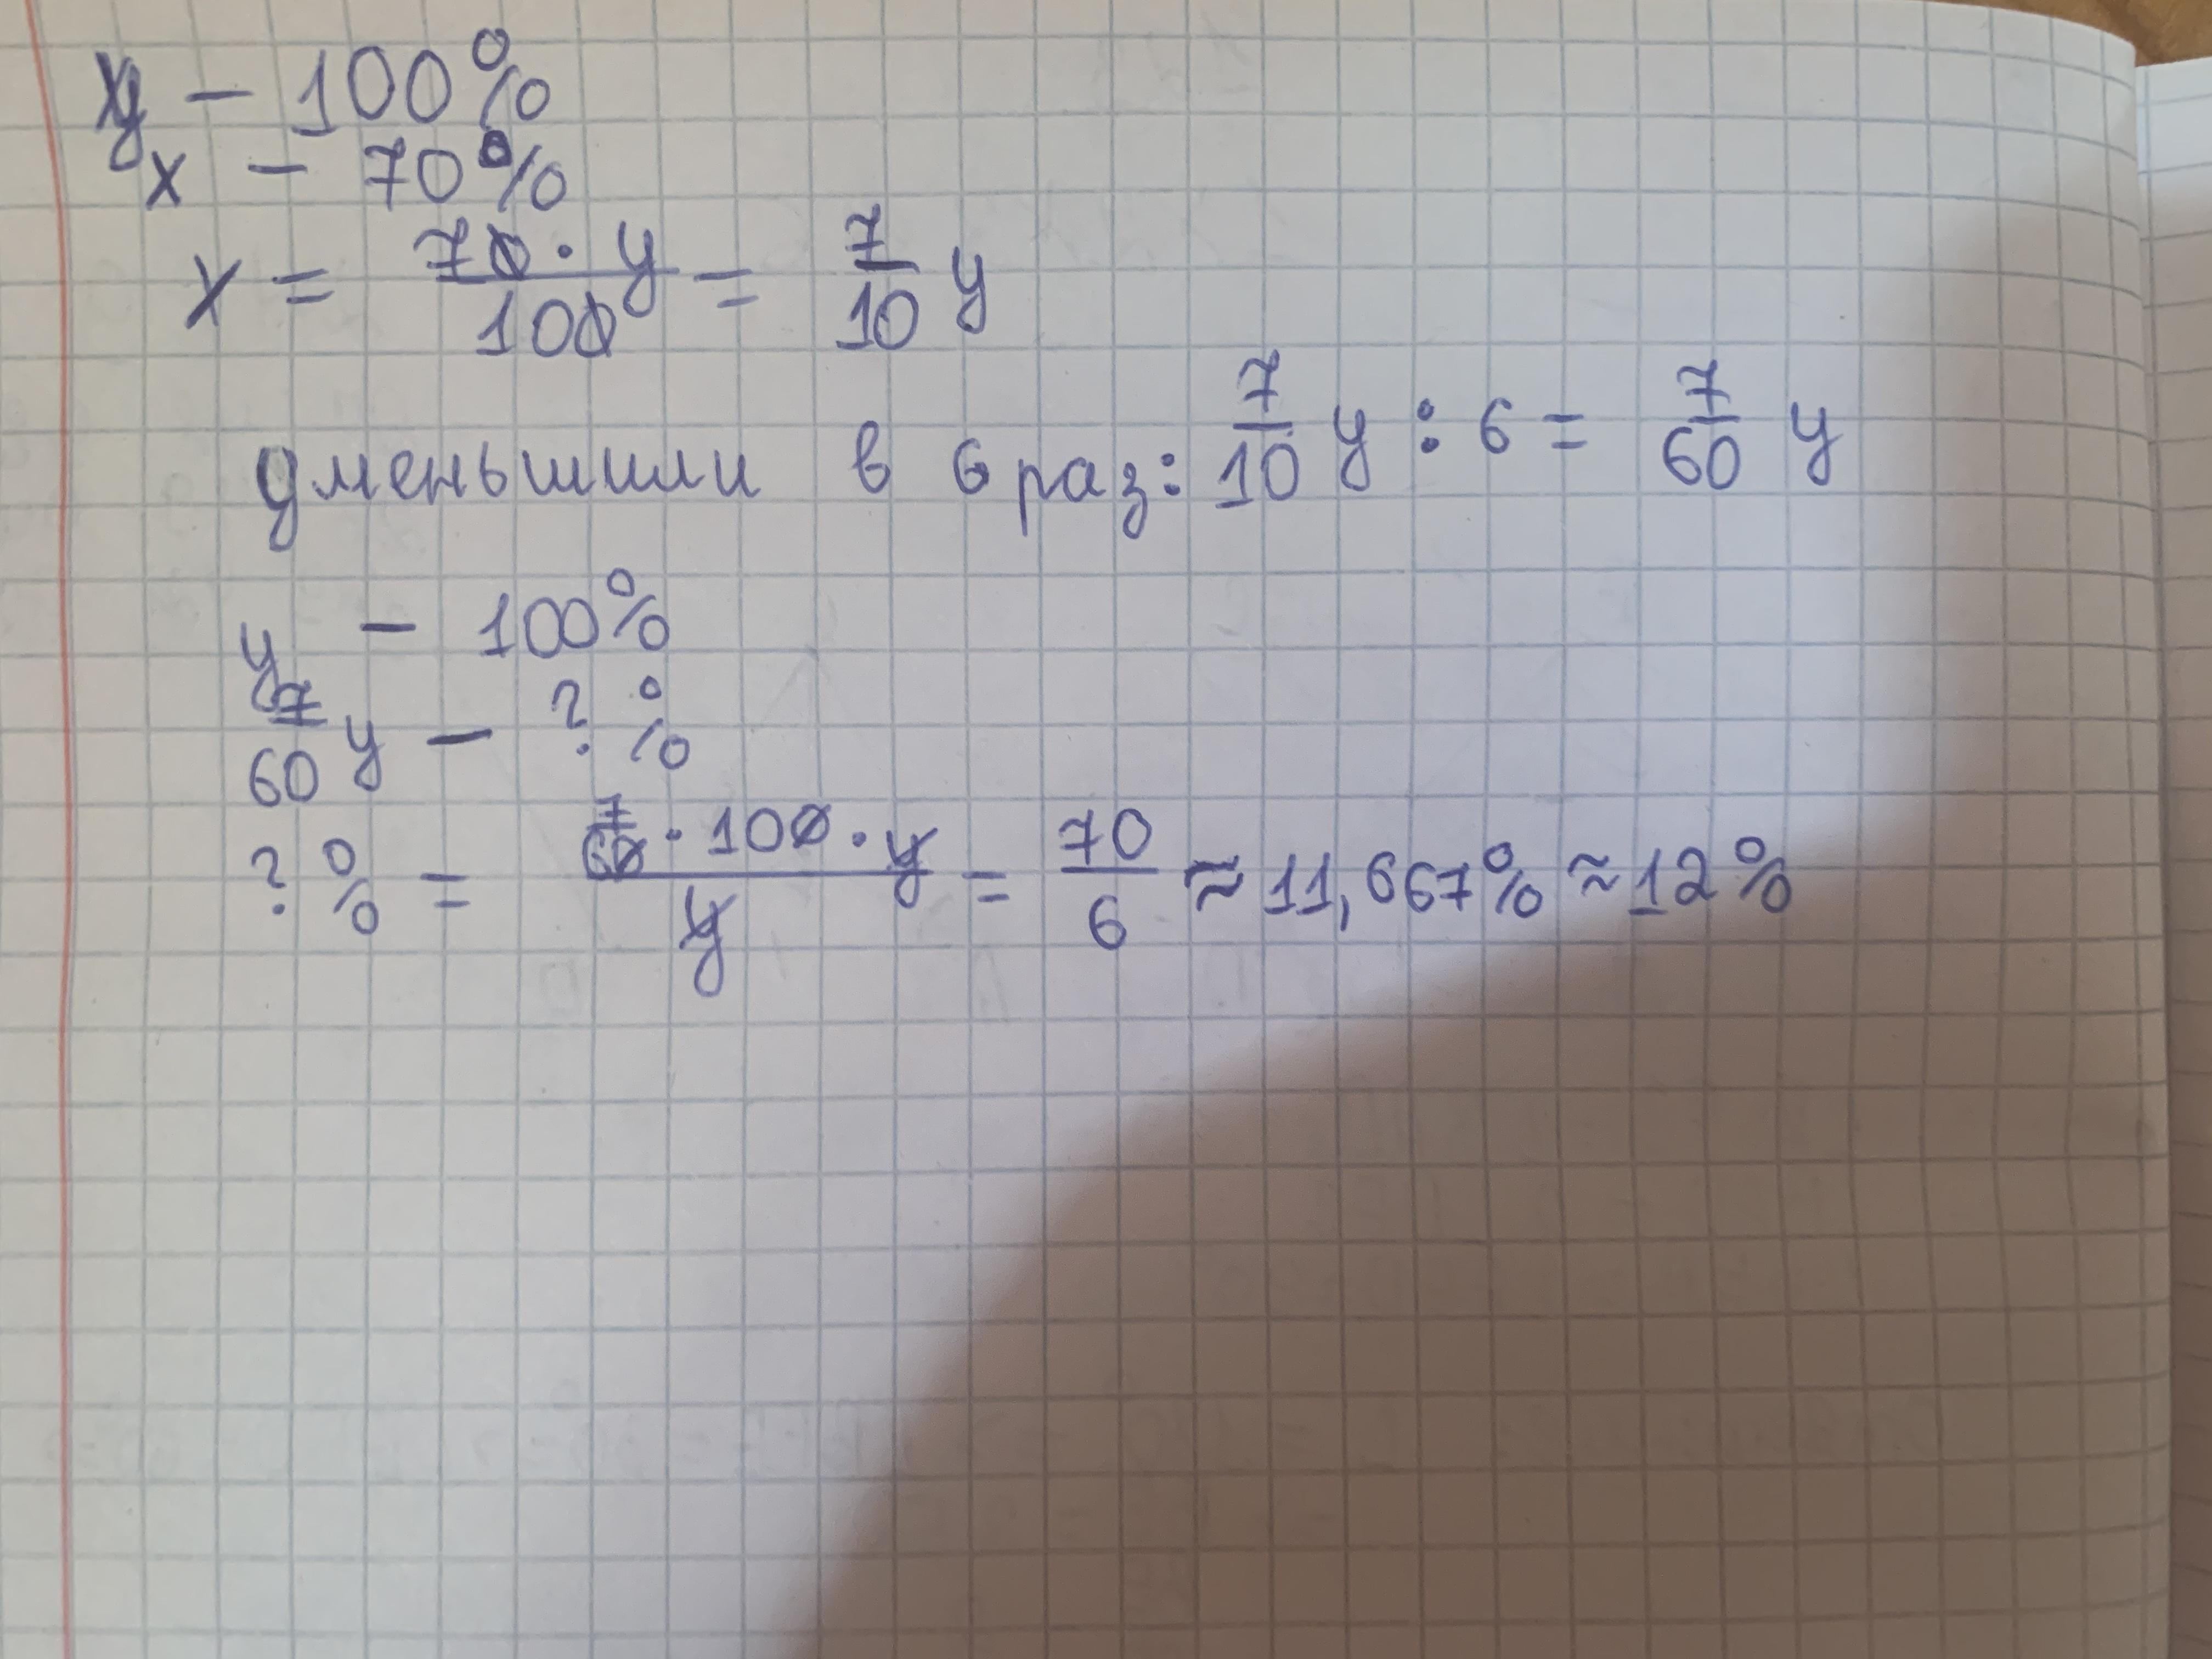 y - 100%
x - 70%
x = 70 · y / 100 = 7/10 y
уменьшили в 6 раз: 7/10 y : 6 = 7/60 y
y - 100%
7/60 y - ? %
? % = 7/60 · 100 · y / y = 70/6 ≈ 11,667% ≈ 12%